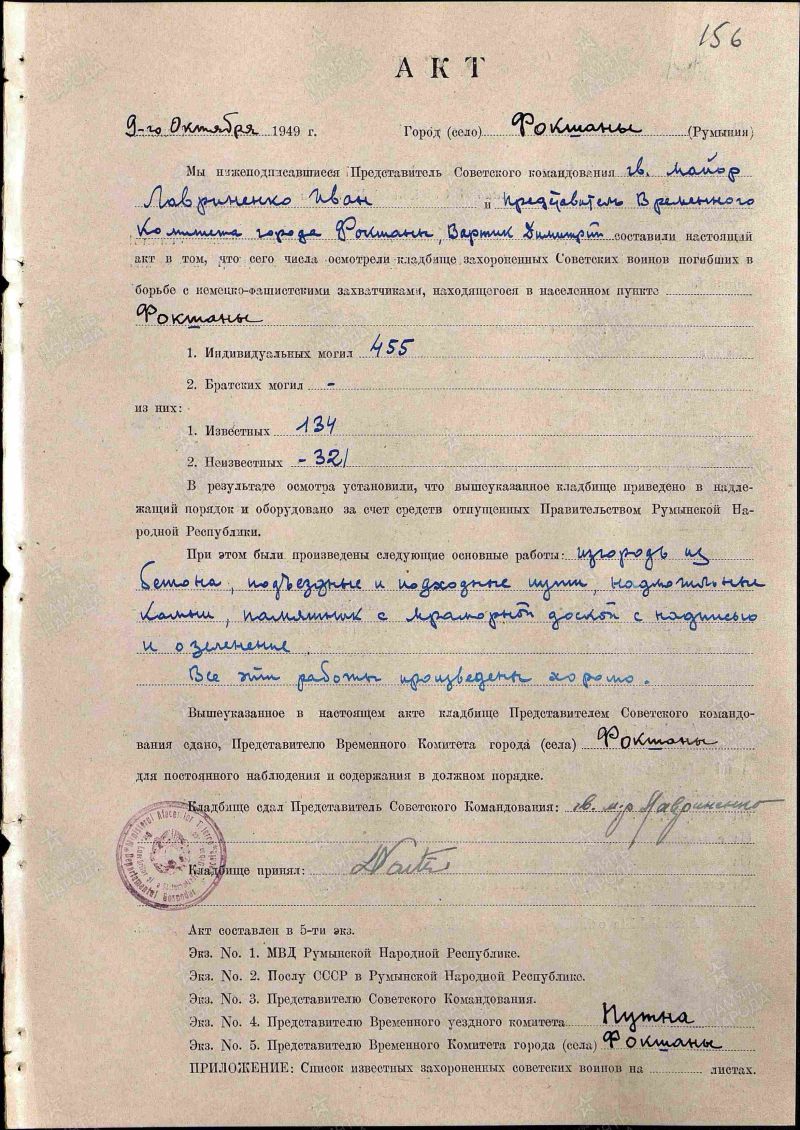 156
АКТ
9-го Октября 1949 г. Город (село) Фокшаны (Румыния)
Мы нижеподписавшиеся Представитель Советского командования гв. майор
Лавриненко Иван и представитель Временного
Комитета города Фокшаны, Вартик Димитрий составили настоящий
акт в том, что сего числа осмотрели кладбище захороненных Советских воинов погибших в
борьбе с немецко-фашистскими захватчиками, находящегося в населенном пункте
Фокшаны
1. Индивидуальных могил 455
2. Братских могил -
из них:
1. Известных 134
2. Неизвестных - 321
В результате осмотра установили, что вышеуказанное кладбище приведено в надле-
жащий порядок и оборудовано за счет средств отпущенных Правительством Румынской На-
родной Республики.
При этом были произведены следующие основные работы: изгородь из
бетона, подъездные и подходные пути, надмогильные
камни, памятник с мраморной доской с надписью
и озеленение.
Все эти работы произведены хорошо.
Вышеуказанное в настоящем акте кладбище Представителем Советского командо-
вания сдано, Представителю Временного Комитета города (села) Фокшаны
для постоянного наблюдения и содержания в должном порядке.
Кладбище сдал Представитель Советского Командования: гв. м-р Лавриненко
Кладбище принял:
Акт составлен в 5-ти экз.
Экз. No. 1. МВД Румынской Народной Республике.
Экз. No. 2. Послу СССР в Румынской Народной Республике.
Экз. No. 3. Представителю Советского Командования.
Экз. No. 4. Представителю Временного уездного комитета Путна
Экз. No. 5. Представителю Временного Комитета города (села) Фокшаны
ПРИЛОЖЕНИЕ: Список известных захороненных советских воинов на листах.